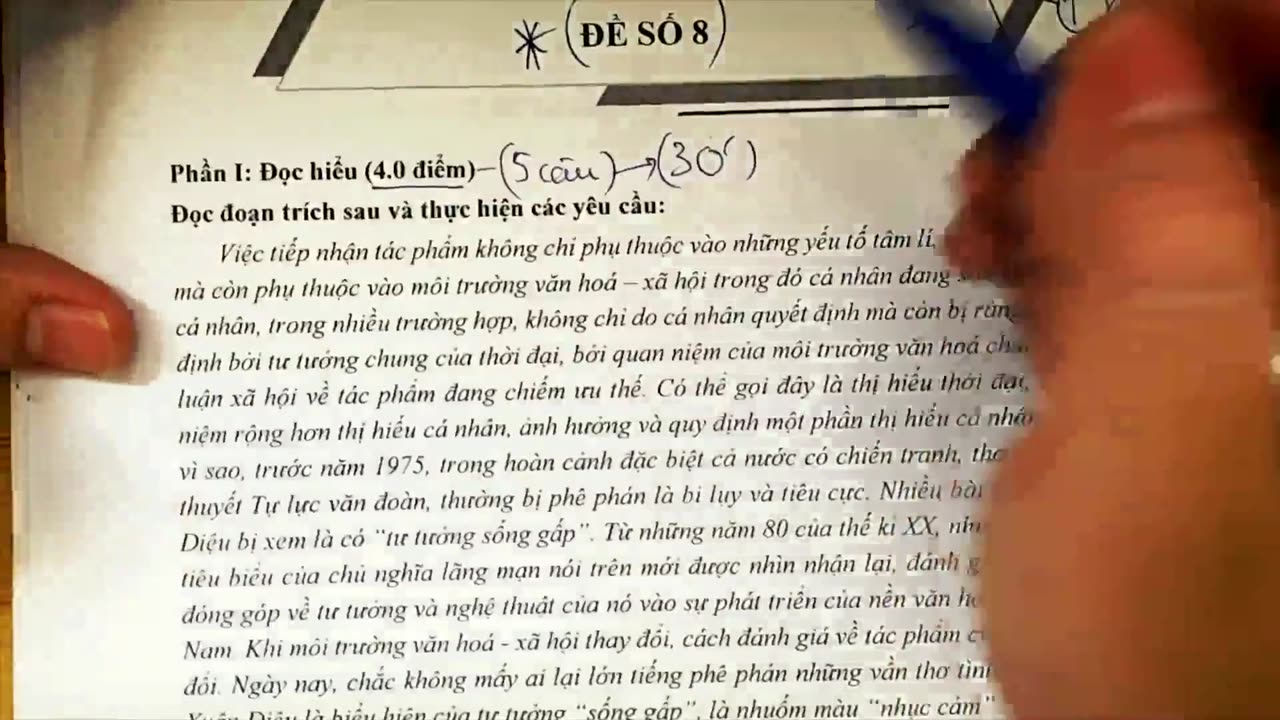 * (ĐỀ SỐ 8)
Phần I: Đọc hiểu (4.0 điểm) – (5 câu) → (30')
Đọc đoạn trích sau và thực hiện các yêu cầu:
Việc tiếp nhận tác phẩm không chỉ phụ thuộc vào những yếu tố tâm lí,
mà còn phụ thuộc vào môi trường văn hoá – xã hội trong đó cá nhân đang
cá nhân, trong nhiều trường hợp, không chỉ do cá nhân quyết định mà còn bị
định bởi tư tưởng chung của thời đại, bởi quan niệm của môi trường văn hoá
luận xã hội về tác phẩm đang chiếm ưu thế. Có thể gọi đây là thị hiếu thời đại,
niệm rộng hơn thị hiếu cá nhân, ảnh hưởng và quy định một phần thị hiếu cá nhân
vì sao, trước năm 1975, trong hoàn cảnh đặc biệt cả nước có chiến tranh,
thuyết Tự lực văn đoàn, thường bị phê phán là bi lụy và tiêu cực. Nhiều
Diệu bị xem là có “tư tưởng sống gấp”. Từ những năm 80 của thế kỉ XX,
tiêu biểu của chủ nghĩa lãng mạn nói trên mới được nhìn nhận lại, đánh
đóng góp về tư tưởng và nghệ thuật của nó vào sự phát triển của nền văn
Nam. Khi môi trường văn hoá - xã hội thay đổi, cách đánh giá về tác phẩm
đổi. Ngày nay, chắc không mấy ai lại lớn tiếng phê phán những vần thơ
Xuân Diệu là biểu hiện của tư tưởng “sống gấp”, là nhuốm màu “nhục cảm”